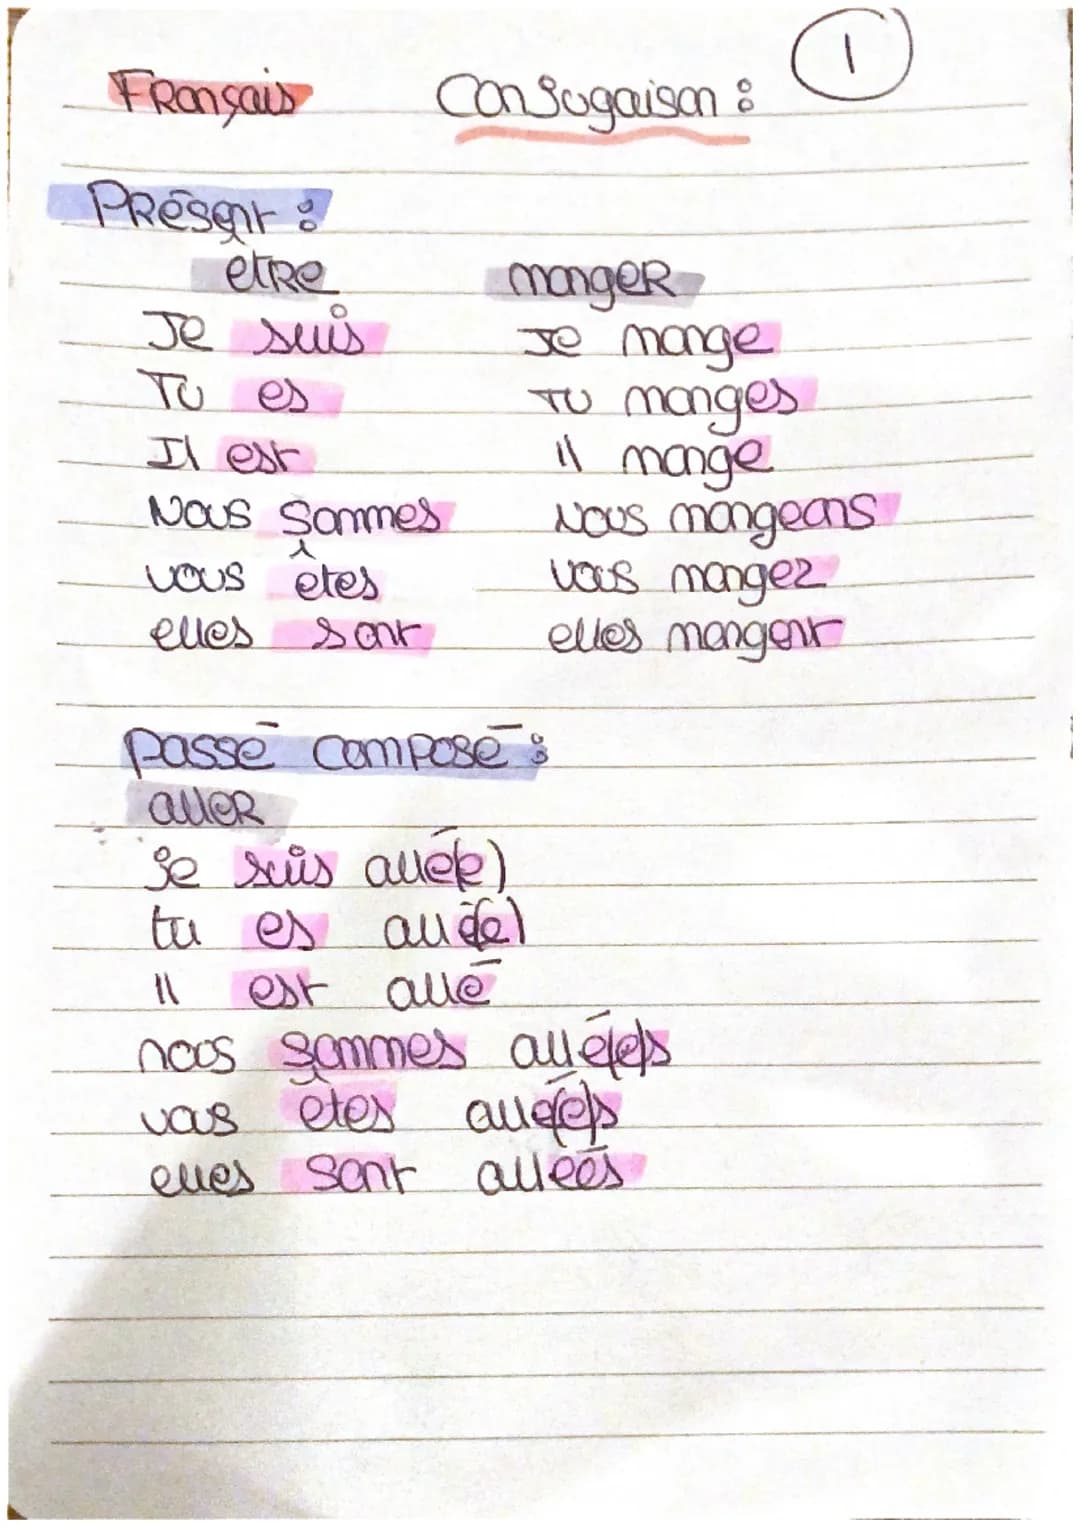 1
Français Conjugaison :
Présent :
être manger
Je suis Je mange
Tu es Tu manges
Il est Il mange
Nous sommes Nous mangeons
vous êtes vous mangez
elles sont elles mangent
passé composé :
aller
je suis allé(e)
tu es allé(e)
Il est allé
nous sommes allé(e)s
vous êtes allé(e)s
elles sont allées